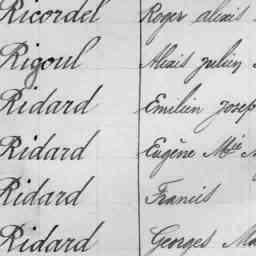 Ricordel Roger alexis
Rigoul Alexis julien
Ridard Emilien josep
Ridard Eugène Mie
Ridard Francis
Ridard Georges Ma